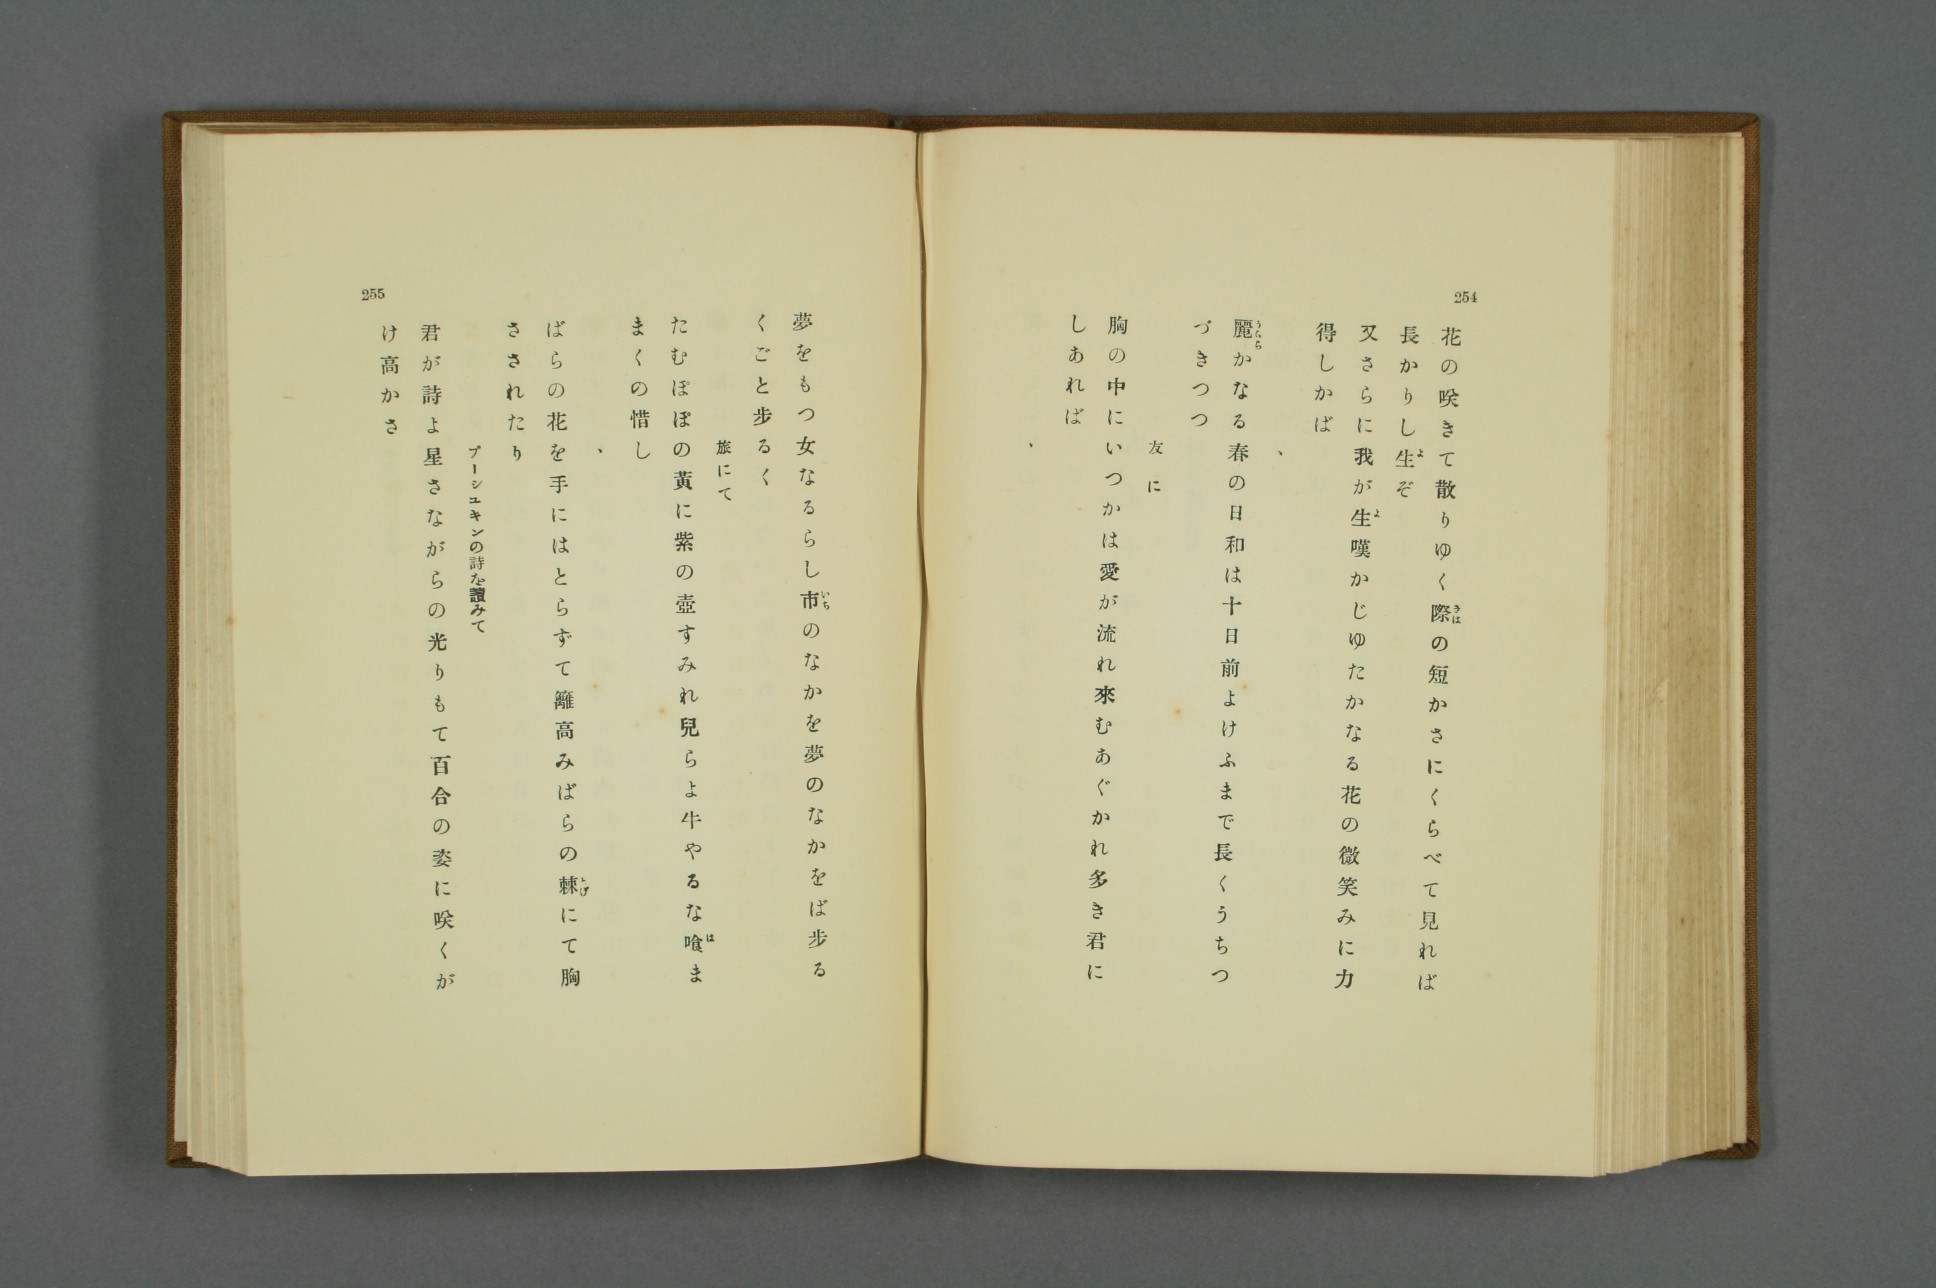 254
花の咲きて散りゆく際の短かさにくらべて見れば
長かりし生ぞ
又さらに我が生嘆かじゆたかなる花の微笑みに力
得しかば
、
麗かなる春の日和は十日前よけふまで長くうちつ
づきつつ
友に
胸の中にいつかは愛が流れ來むあぐかれ多き君に
しあれば
、
夢をもつ女なるらし市のなかを夢のなかをば步る
くごと步るく
旅にて
たむぽぽの黃に紫の壺すみれ兒らよ牛やるな喰ま
まくの惜し
、
ばらの花を手にはとらずて籬高みばらの棘にて胸
さされたり
プーシユキンの詩を讀みて
君が詩よ星さながらの光りもて百合の姿に咲くが
け高かさ
255